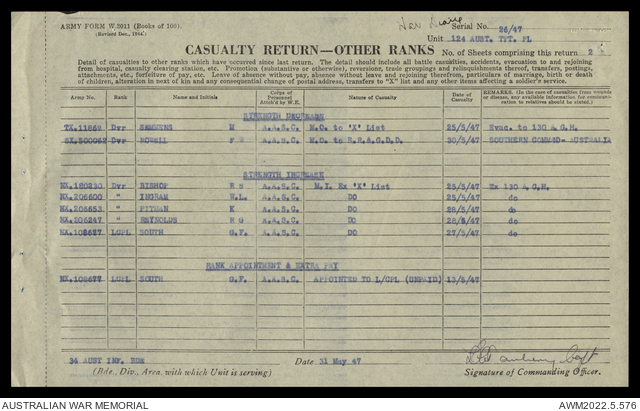 ARMY FORM W.3011 (Books of 100).
(Revised Dec., 1944.)
Serial No. 26/47
Unit 124 AUST. TPT. PL
CASUALTY RETURN—OTHER RANKS
No. of Sheets comprising this return 2
Detail of casualties to other ranks which have occurred since last return. The detail should include all battle casualties, evacuation to and rejoining
from hospital, casualty clearing station, etc. Promotion (substantive or otherwise), reversions, trade groupings and relinquishments thereof, transfers, postings,
attachments, etc., forfeiture of pay, etc. Leave of absence without pay, absence without leave and rejoining therefrom, particulars of marriage, birth or death
of children, alteration in next of kin and any consequential change of postal address, transfers to "X" list and any other items affecting a soldier's service.
Army No. Rank Name and Initials Corps of Personnel Attch'd by W.E. Nature of Casualty Date of Casualty REMARKS. (In the case of casualties from wounds or disease, any available information for communication to relatives should be stated.)
STRENGTH DECREASE
TX.11868 Dvr SEMMENS M A.A.S.C. M.O. to "X" List 25/5/47 Evac. to 130 A.G.H.
SX.500062 Dvr A.A.S.C. M.O. to R.H.A.G.D.D. 30/5/47 SOUTHERN COMMD- AUSTRALIA
STRENGTH INCREASE
NX.180230 Dvr BISHOP R S A.A.S.C. M.I. Ex "X" List 25/5/47 Ex 130 A.G.H.
NX.206600 " INGRAM W.L. A.A.S.C. DO 25/5/47 do
NX.206653 " PITMAN K A.A.S.C. DO 28/5/47 do
NX.206247 " REYNOLDS R G A.A.S.C. DO 28/5/47 do
NX.108677 LCPL SOUTH G.F. A.A.S.C. DO 27/5/47 do
RANK APPOINTMENT & EXTRA PAY
NX.108677 LCPL SOUTH G.F. A.A.S.C. APPOINTED TO L/CPL (UNPAID) 13/5/47
34 AUST INF. BDE Date 31 May 47 Capt
(Bde., Div., Area, with which Unit is serving) Signature of Commanding Officer.
AUSTRALIAN WAR MEMORIAL AWM2022.5.576